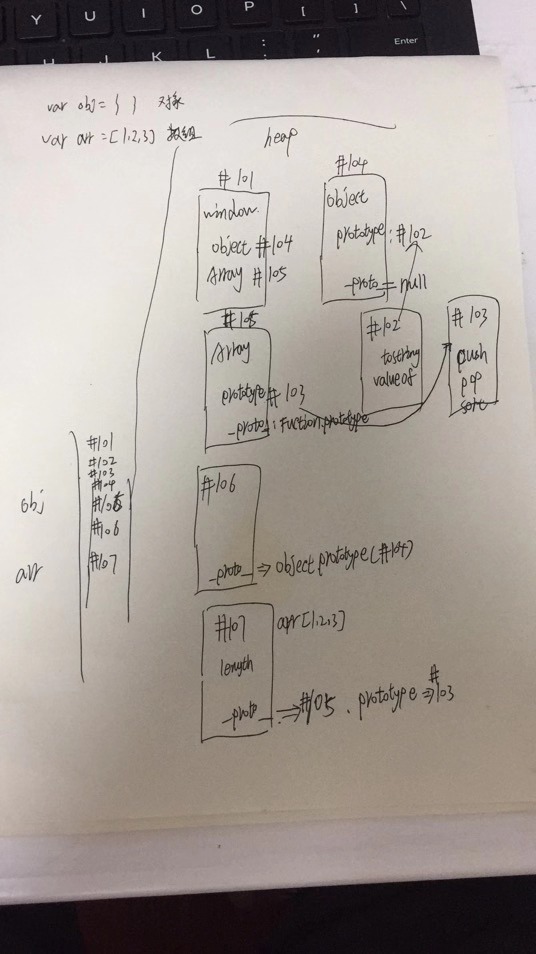 Y U I O P [ ] \
H J K L : ; " ' Enter
var obj = { } 对象
var arr = [1,2,3] 数组
heap
#101
window.
object #104
Array #105
#104
object
prototype : #102
_proto_ = null
#105
Array
prototype #103
_proto_ : Fuction.prototype
#102
tostring
valueof
#103
push
pop
sort
#101
#102
#103
#104
obj
#106
arr
#107
#106
_proto_ ⇒ object prototype (#104)
#107 arr [1,2,3]
length
_proto_ ⇒ #105 . prototype ⇒ #103